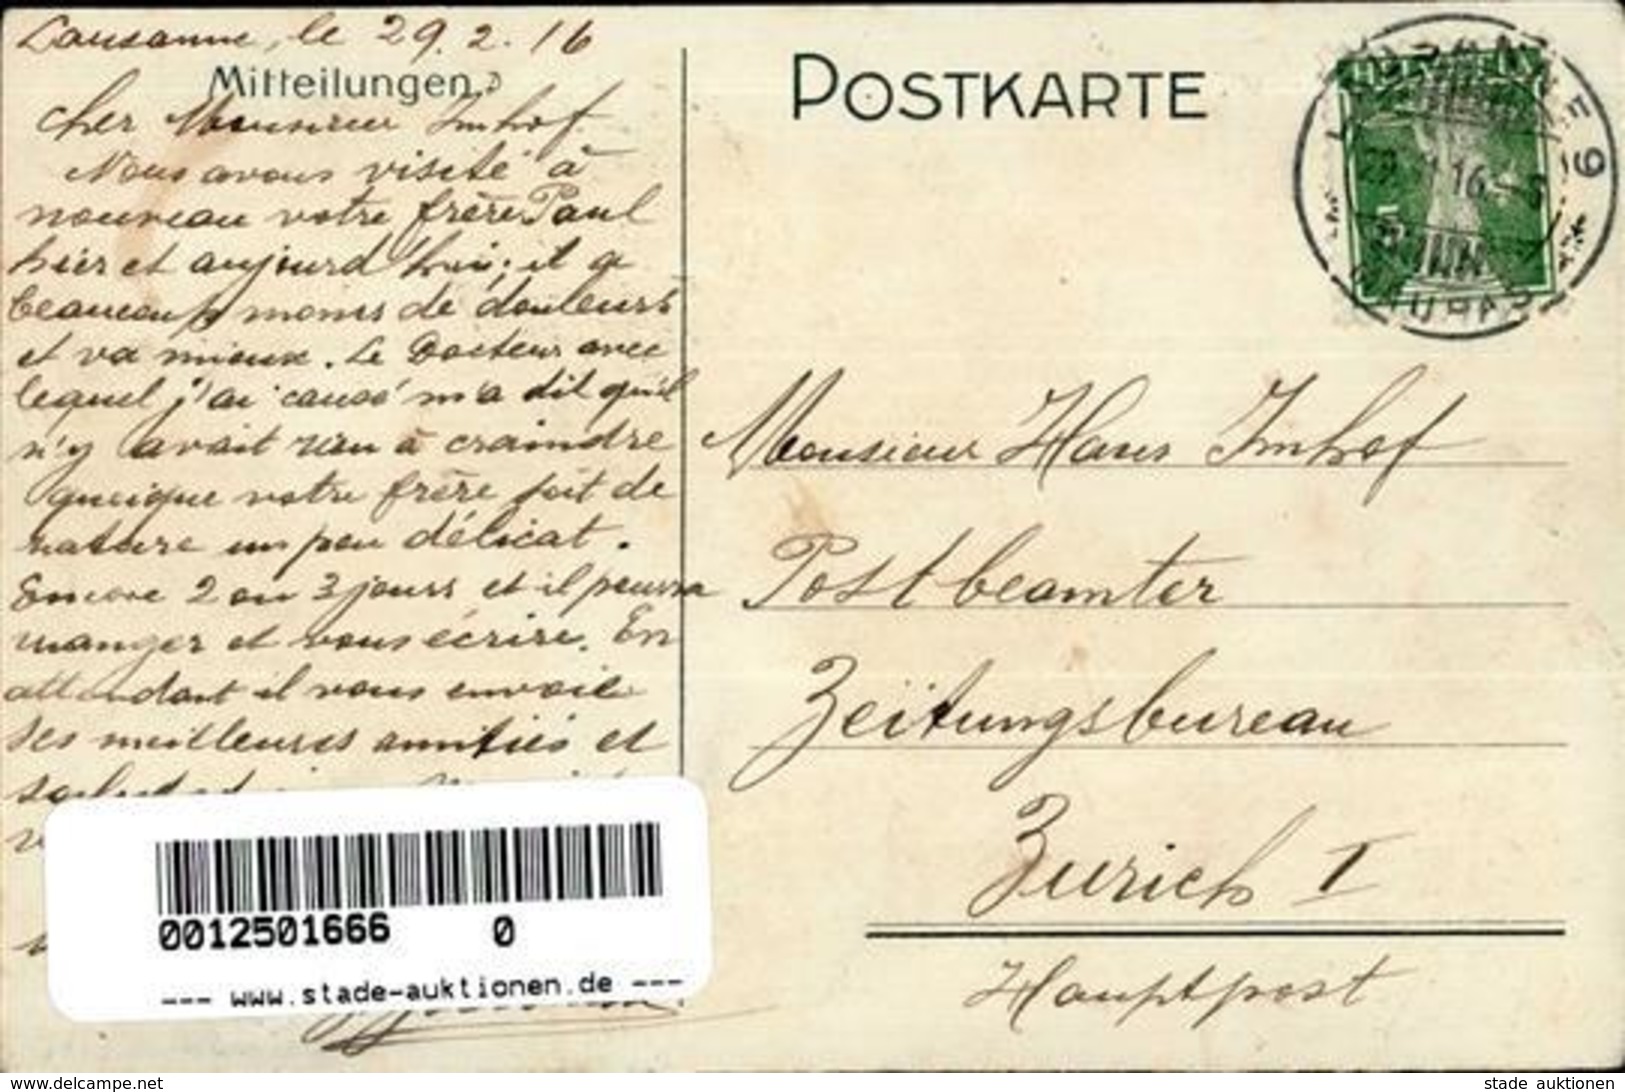 Lausanne, le 29.2.16
Mitteilungen.
Cher Monsieur Imhof.
Nous avons visité à
nouveau votre frère Paul
hier et aujourd'hui; il a
beaucoup moins de douleurs
et va mieux. Le Docteur avec
lequel j'ai causé m'a dit qu'il
n'y avait rien à craindre
quoique votre frère soit de
nature un peu délicat.
Encore 2 ou 3 jours et il pourra
manger et vous écrire. En
attendant il vous envoie
ses meilleures amitiés et
POSTKARTE
LAUSANNE
16
9
5
Monsieur Hans Imhof
Postbeamter
Zeitungsbureau
Zurich I
Hauptpost
0012501666 0
--- www.stade-auktionen.de ---
www.delcampe.net
stade auktionen